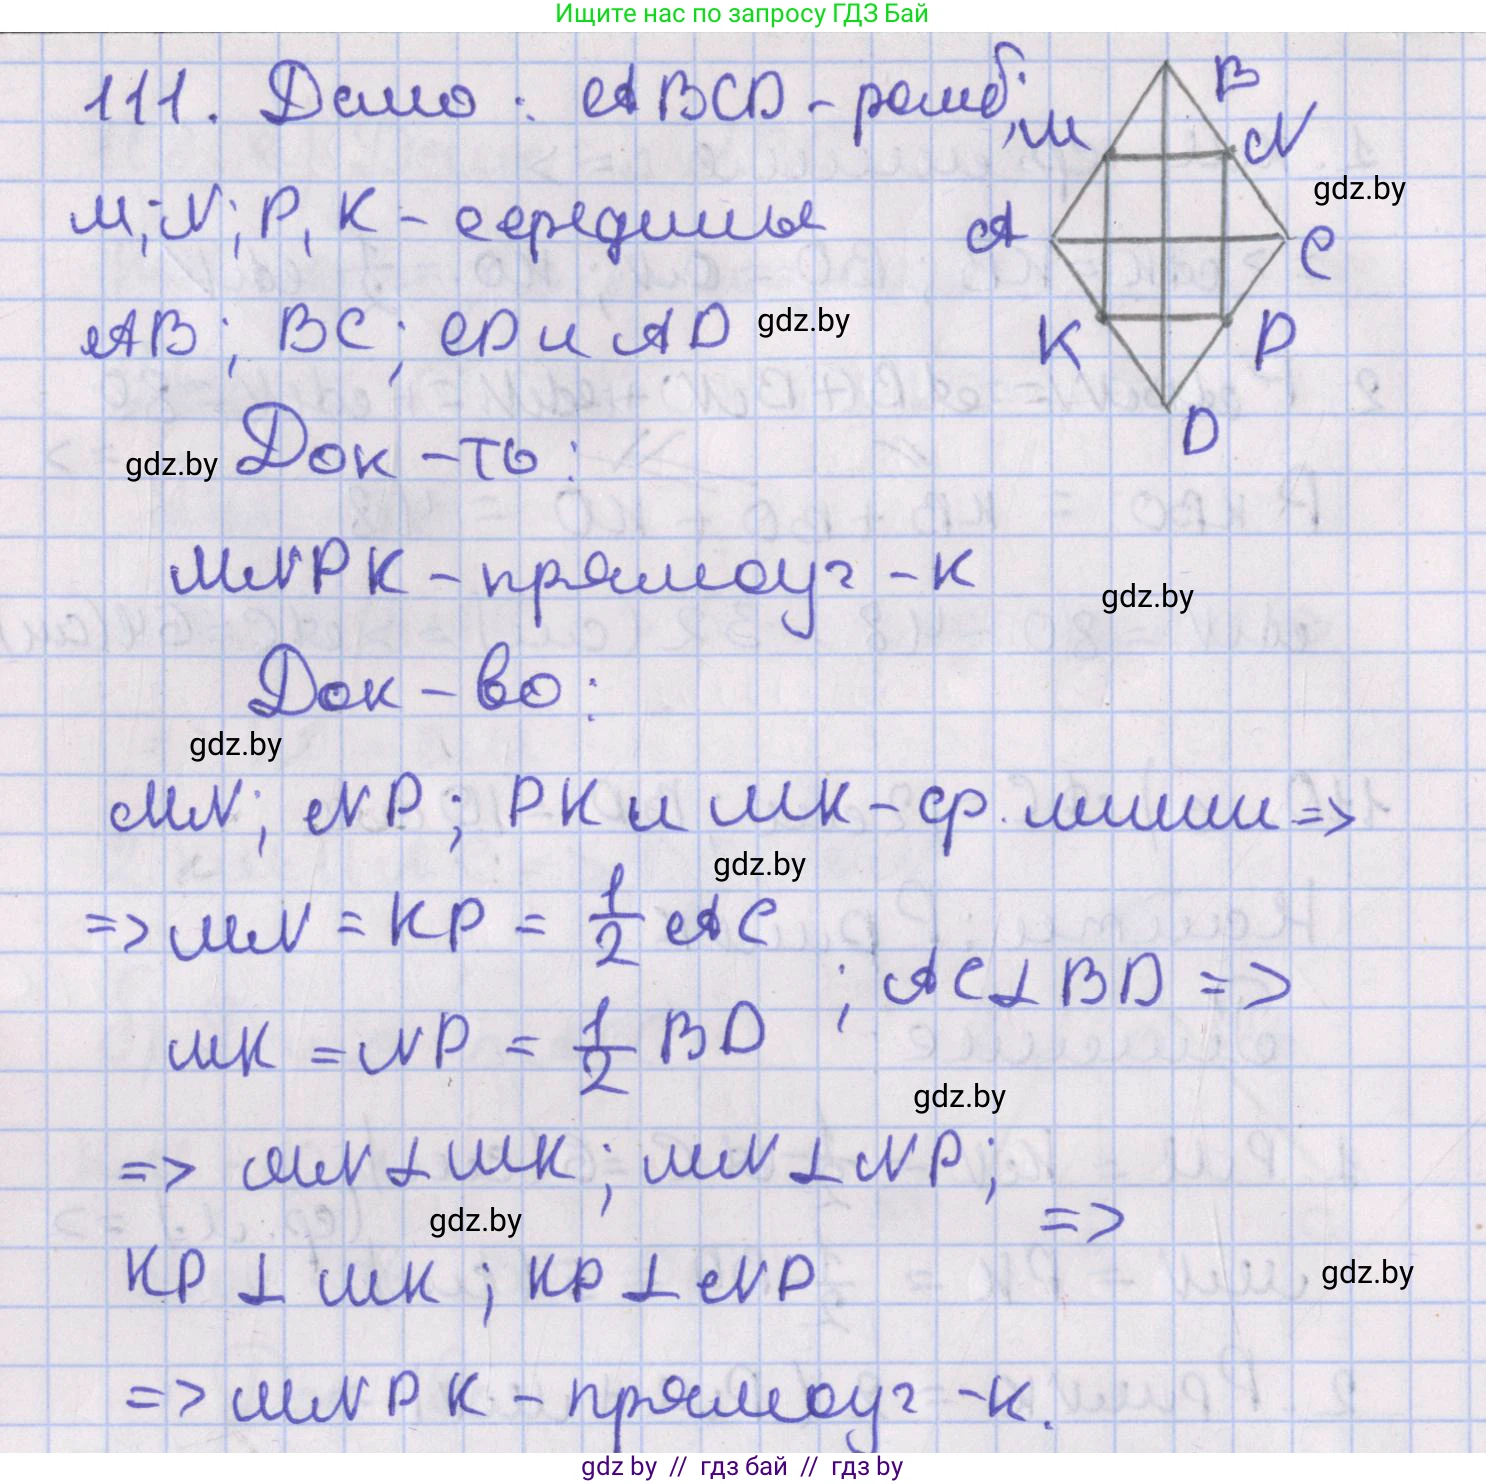 Ищите нас по запросу ГДЗ Бай
111. Дано: ABCD - ромб;
M; N; P, K - середины
AB; BC; CD и AD
Док-ть:
MNPK - прямоуг-к
Док-во:
MN; NP; PK и MK - ср. линии =>
=> MN = KP = 1/2 AC
MK = NP = 1/2 BD
; AC ⊥ BD =>
=> MN ⊥ MK; MN ⊥ NP;
KP ⊥ MK; KP ⊥ NP
=>
=> MNPK - прямоуг-к.
B
M
N
A
C
K
P
D
gdz.by
gdz.by
gdz.by
gdz.by
gdz.by
gdz.by
gdz.by
gdz.by
gdz.by
gdz by // гдз бай // гдз by